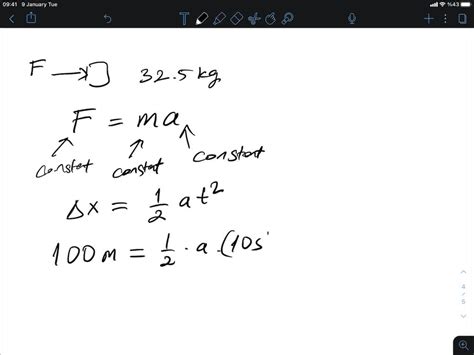 09:41 9 January Tue
%43
F → 32.5 kg
F = ma
constant constant constant
Δx = 1/2 at²
100m = 1/2 · a · (10s
4
5